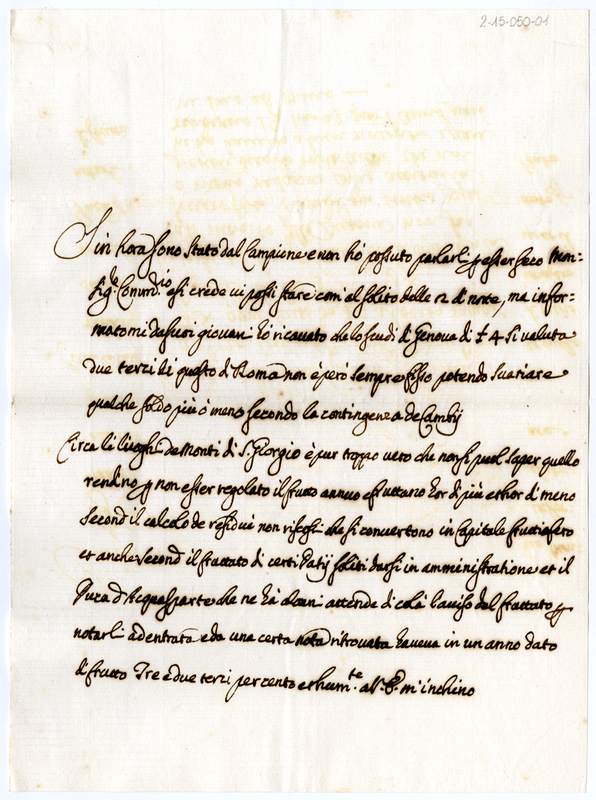 2-15-050-01
Sin hora sono stato dal Campione e non hò possuto parlarli p esser seco Mon-
sig.re Comm.rio e si crede vi possi stare com' al solito delle 12 di notte, ma infor-
matomi da suoi giovani hò ricavato che lo scudi di Genova di £ 4 si valuta
due terzi di questo di Roma non è però sempre fisso potendo svariare
qualche soldo più ò meno secondo la contingenza de Cambij
Circa li luoghi de Monti di S. Giorgio è pur troppo vero che non si puol saper quello
rendino p non esser regolato il frutto annuo e fruttano hor di più et hor di meno
second il calcolo de residui non risc che si convertono in Capitale fruttifero
et anche second il fruttato di certi soliti darsi in amministratione et il
Duca d'Acquasparte che ne hà alcuni attende di colà l'aviso del fruttato p
notarli ad entrata e da una certa nota ritrovata haveva in un anno dato
di frutto Tre e due terzi per cento et hum.te a V. E. m'inchino